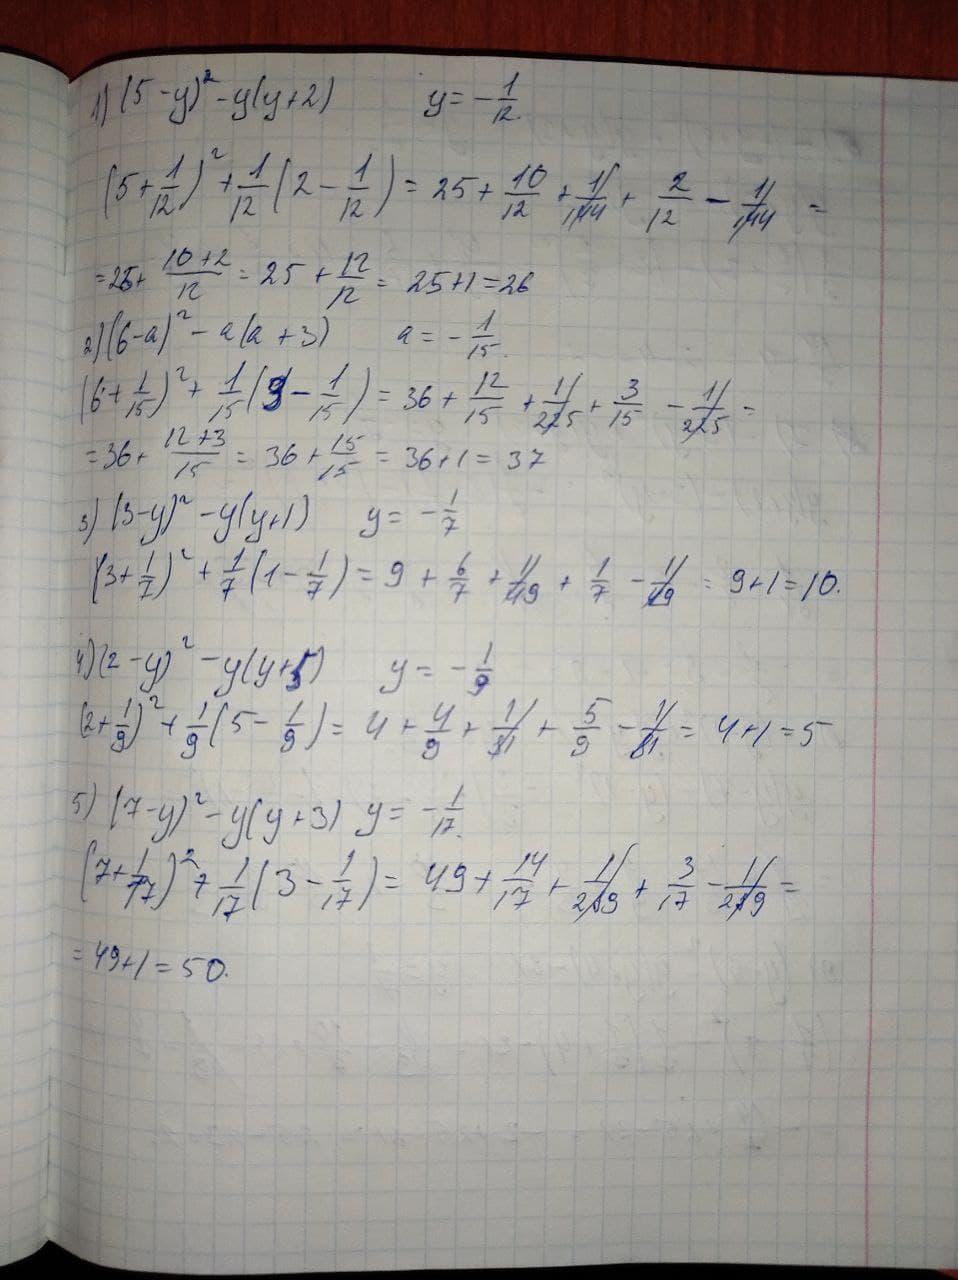 1) (5-y)² - y(y+2)   y = -1/12.
(5+1/12)² + 1/12(2 - 1/12) = 25 + 10/12 + 1/144 + 2/12 - 1/144 =
= 25 + (10+2)/12 = 25 + 12/12 = 25+1 = 26
2) (6-a)² - a(a+3)   a = -1/15.
(6+1/15)² + 1/15(3 - 1/15) = 36 + 12/15 + 1/225 + 3/15 - 1/225 =
= 36 + (12+3)/15 = 36 + 15/15 = 36+1 = 37
3) (3-y)² - y(y+1)   y = -1/7
(3+1/7)² + 1/7(1 - 1/7) = 9 + 6/7 + 1/49 + 1/7 - 1/49 = 9+1 = 10.
4) (2-y)² - y(y+5)   y = -1/9
(2+1/9)² + 1/9(5 - 1/9) = 4 + 4/9 + 1/81 + 5/9 - 1/81 = 4+1 = 5
5) (7-y)² - y(y+3)   y = -1/17.
(7+1/17)² + 1/17(3 - 1/17) = 49 + 14/17 + 1/289 + 3/17 - 1/289 =
= 49+1 = 50.